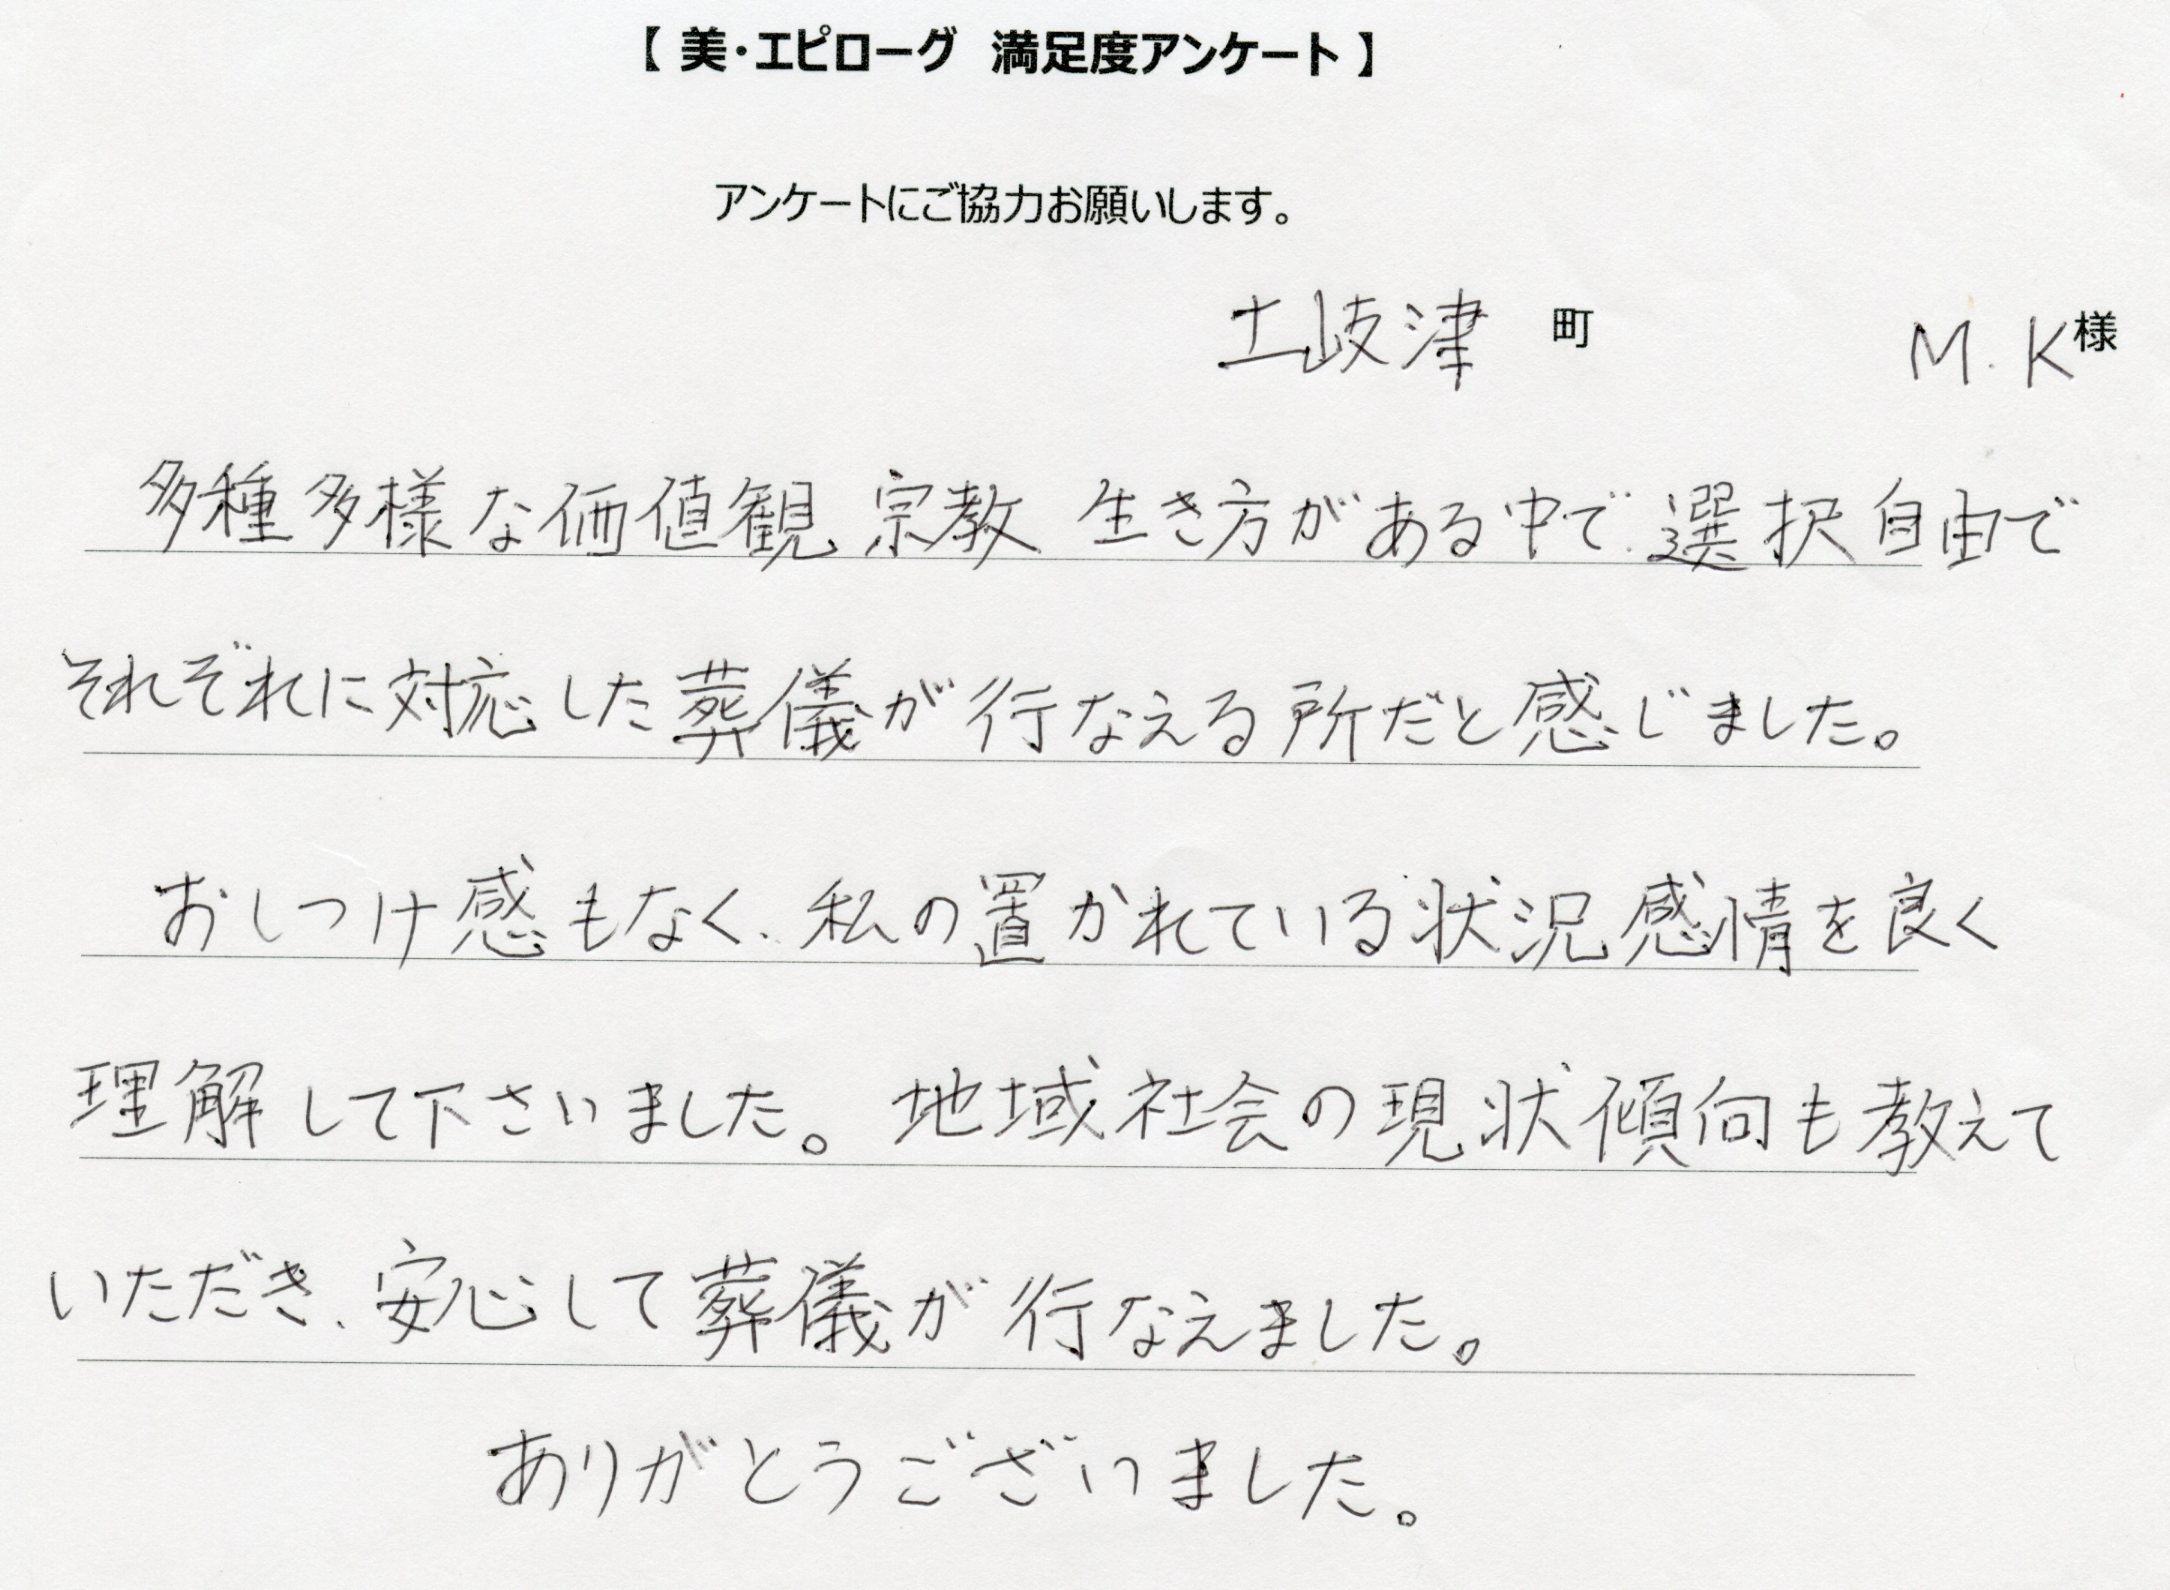 【 美・エピローグ 満足度アンケート 】
アンケートにご協力お願いします。
土岐津 町 M.K様
多種多様な価値観 宗教 生き方がある中で、選択自由で
それぞれに対応した葬儀が行なえる所だと感じました。
おしつけ感もなく、私の置かれている状況感情を良く
理解して下さいました。地域社会の現状傾向も教えて
いただき、安心して葬儀が行なえました。
ありがとうございました。